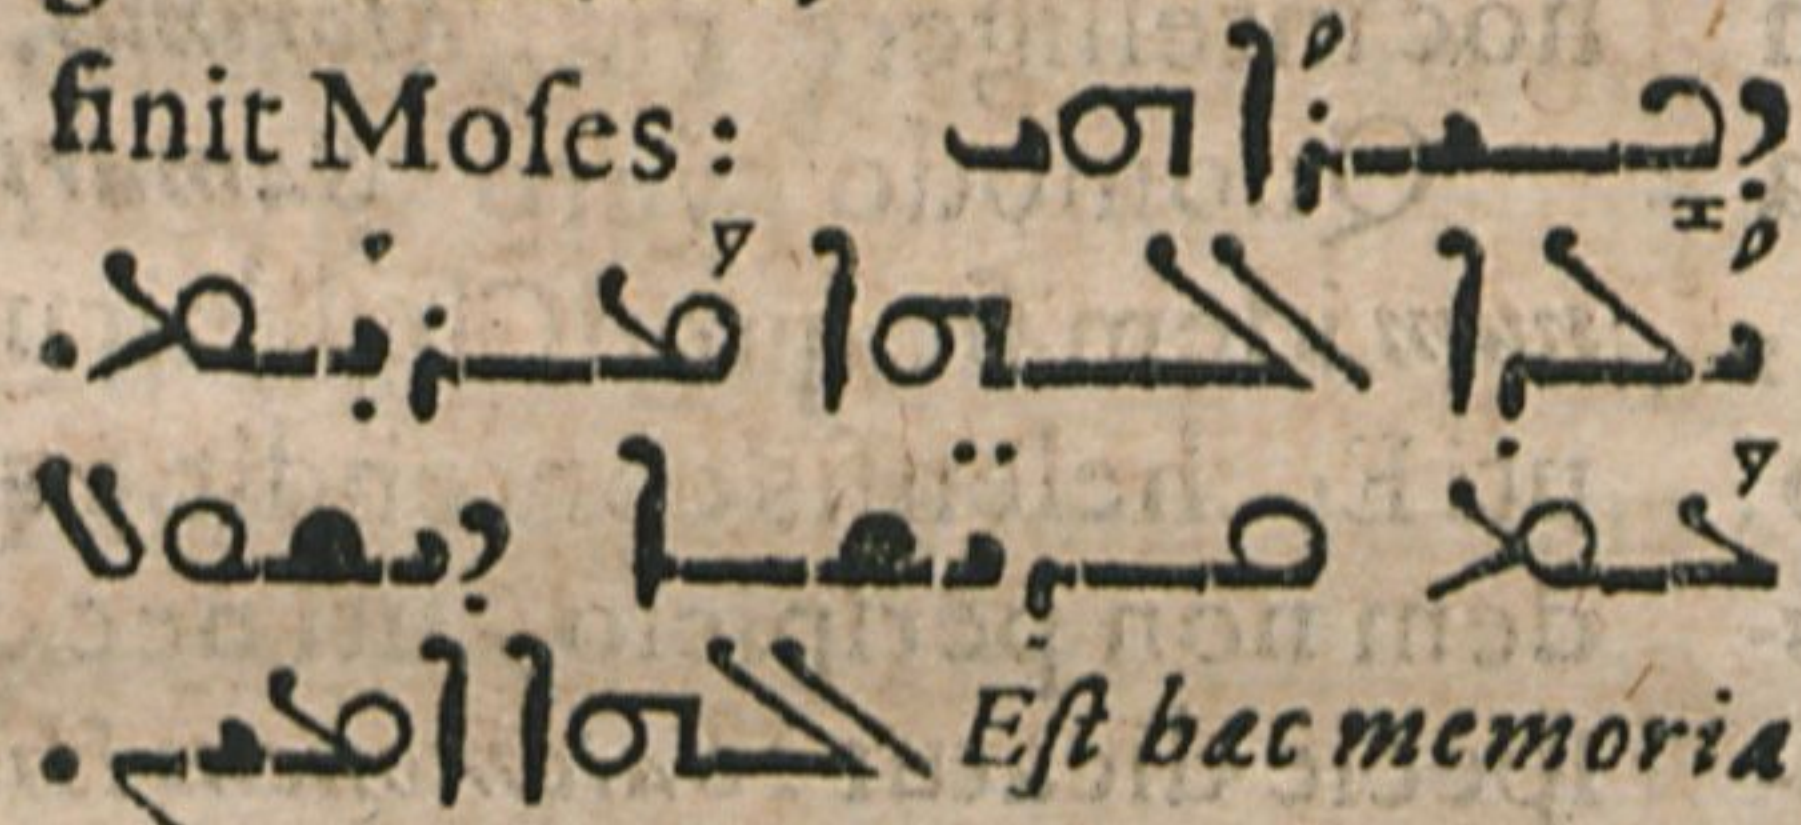 finit Moſes: ܕܟܺܝܪܳܐ ܗܘܝ
ܝܳܠܕܐ ܐܠܗܐ ܡܰܪܝܡ.
ܥܰܡ ܩܕܝ̈ܫܐ ܕܝܫܘܥ
ܐܠܗܐ ܐܡܝܢ. Eſt hæc memoria